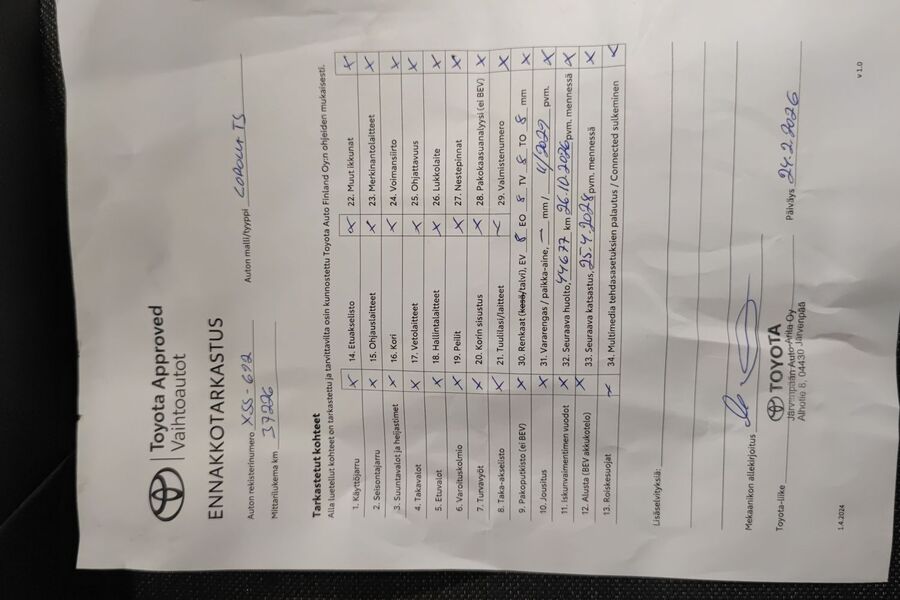 Toyota Approved
Vaihtoautot
ENNAKKOTARKASTUS
Auton rekisterinumero XSS-692 Auton malli/tyyppi COROLLA TS
Mittarilukema km 37226
Tarkastetut kohteet
Alla luetellut kohteet on tarkastettu ja tarvittavilta osin kunnostettu Toyota Auto Finland Oy:n ohjeiden mukaisesti.
1. Käyttöjarru X 14. Etuakselisto X 22. Muut ikkunat X
2. Seisontajarru X 15. Ohjauslaitteet X 23. Merkinantolaitteet X
3. Suuntavalot ja heijastimet X 16. Kori X 24. Voimansiirto X
4. Takavalot X 17. Vetolaitteet X 25. Ohjattavuus X
5. Etuvalot X 18. Hallintalaitteet X 26. Lukkolaite X
6. Varoituskolmio X 19. Peilit X 27. Nestepinnat X
7. Turvavyöt X 20. Korin sisustus X 28. Pakokaasuanalyysi (ei BEV) X
8. Taka-akselisto X 21. Tuulilasi/laitteet X 29. Valmistenumero X
9. Pakoputkisto (ei BEV) X 30. Renkaat (kesä/talvi), EV 8 EO 8 TV 8 TO 8 mm X
10. Jousitus X 31. Vararengas / paikka-aine, — mm /. 4/2029 pvm. X
11. Iskunvaimentimen vuodot X 32. Seuraava huolto, 44677 km 26.10.2026 pvm. mennessä X
12. Alusta (BEV akkukotelo) X 33. Seuraava katsastus, 25.4.2028 pvm. mennessä X
13. Roiskesuojat X 34. Multimedia tehdasasetuksien palautus / Connected sulkeminen X
Lisäselvityksiä:
Mekaanikon allekirjoitus Päiväys 24.2.2026
Toyota-liike TOYOTA
Järvenpään Auto-Arita Oy
Alhotie 8, 04430 Järvenpää
1.4.2024 v 1.0